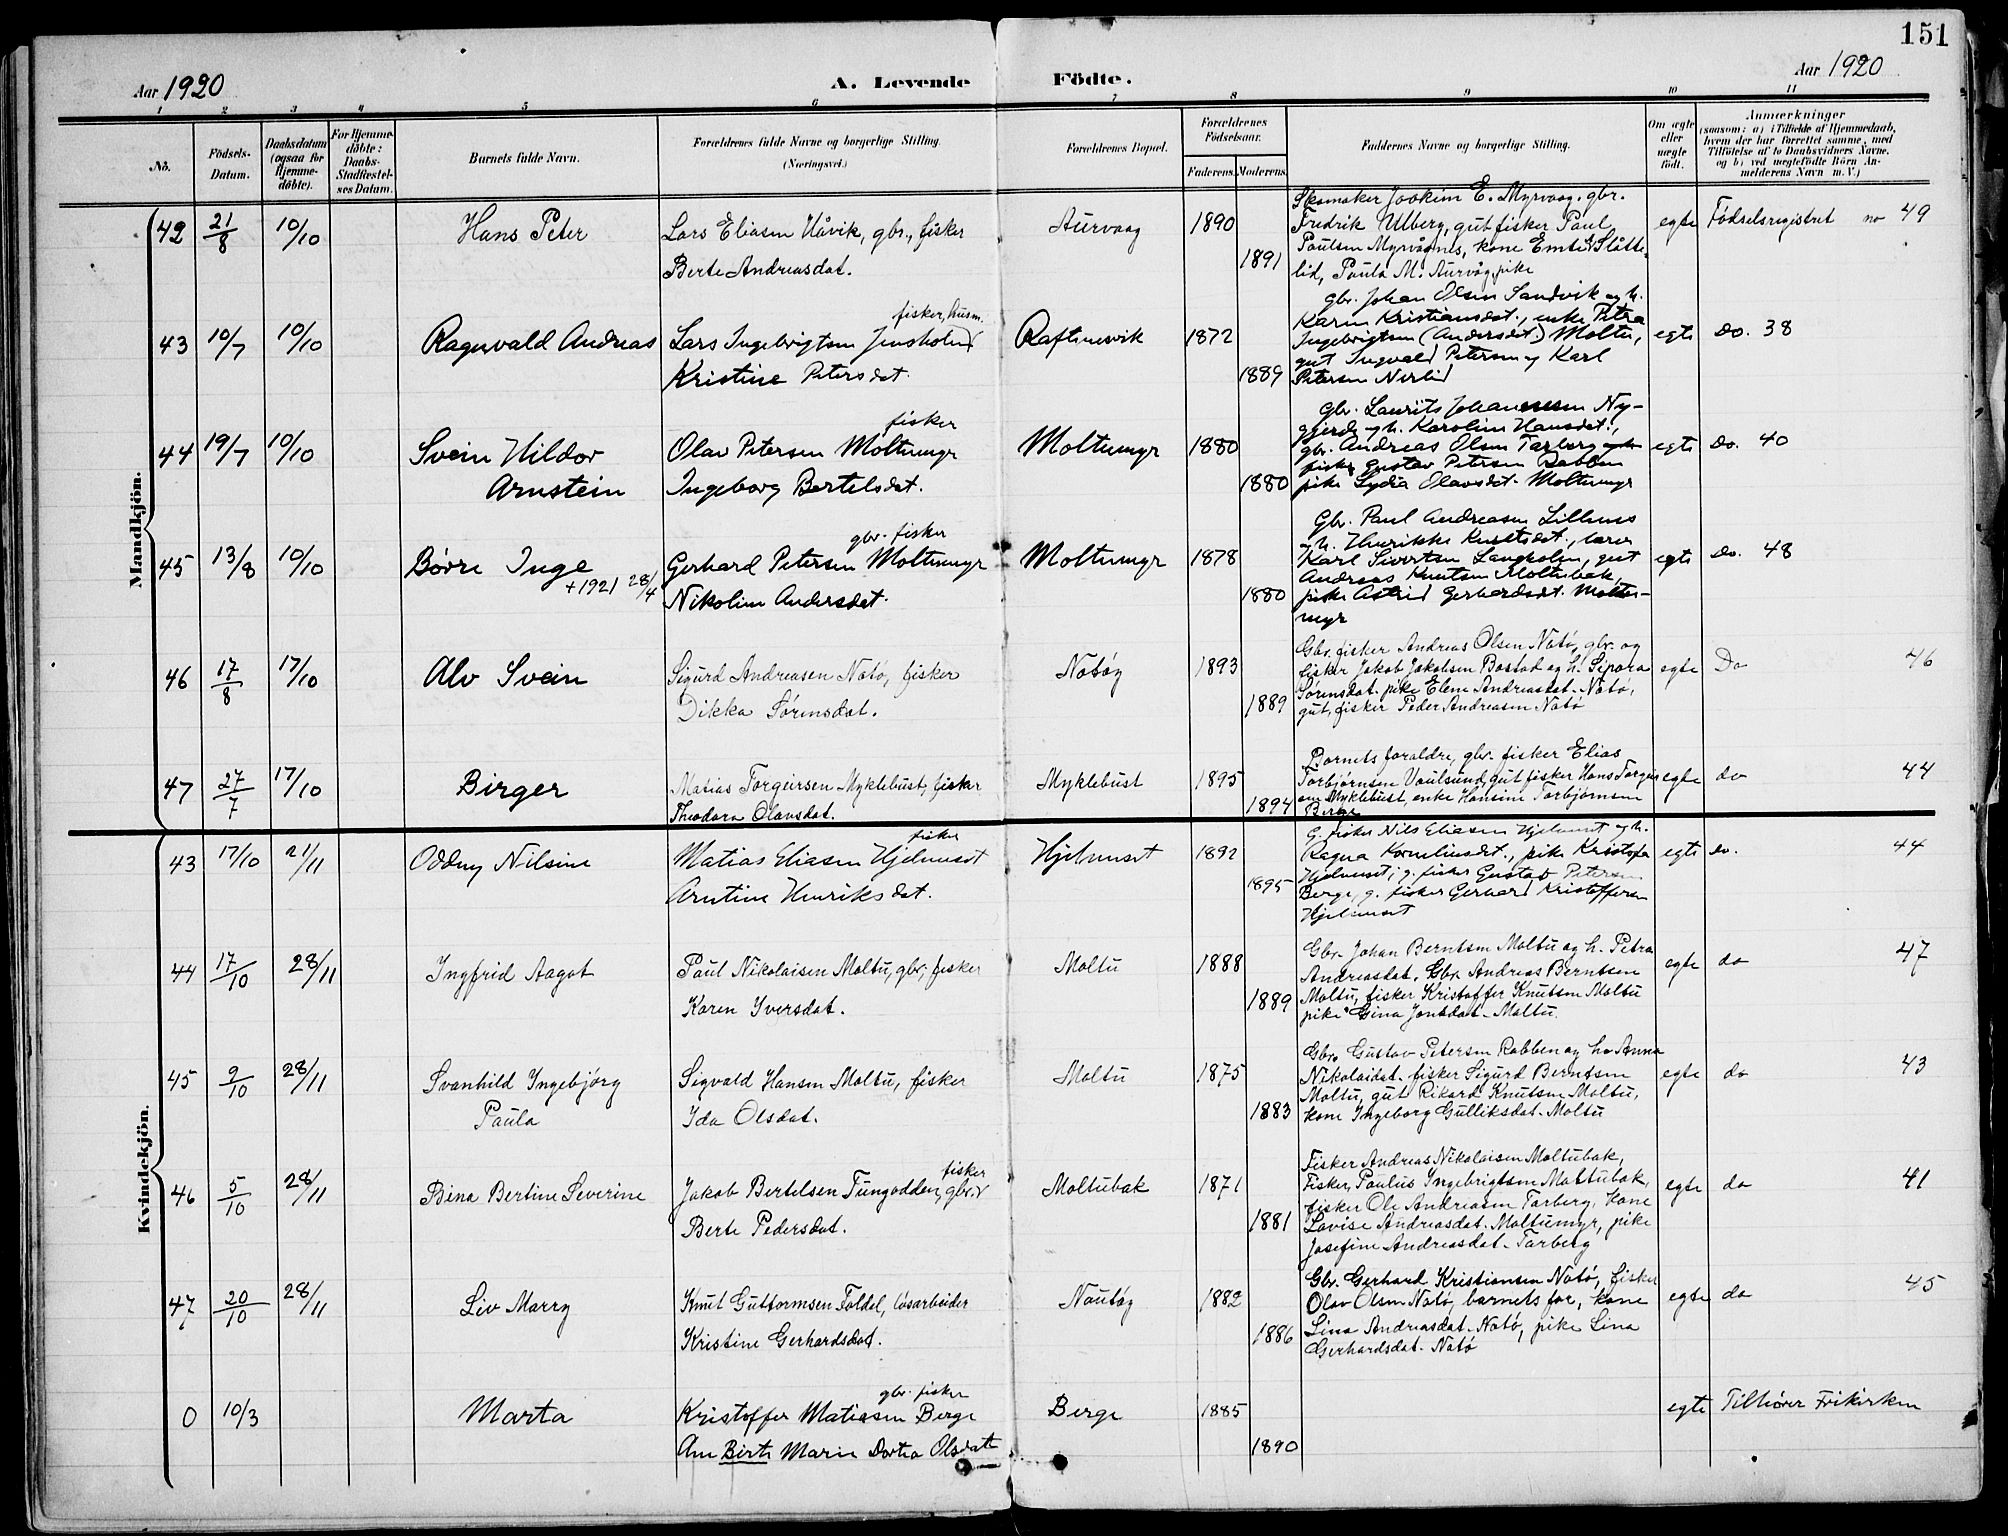 151
Aar 1920
A. Levende Födte.
Aar 1920
1 2 3 4 5 6 7 8 9 10 11
No.
Födsels-Datum.
Daabsdatum (ogsaa for Hjemme-döbte).
For Hjemme-döbte: Daabs-Stadfæstel-ses Datum.
Barnets fulde Navn.
Forældrenes fulde Navne og borgerlige Stilling. (Næringsvei.)
Forældrenes Bopæl.
Forældrenes Födselsaar.
Faderens. Moderens.
Faddernes Navne og borgerlige Stilling.
Om ægte eller uægte födt.
Anmærkninger
(saasom: a) i Tilfælde af Hjemmedaab, hvem der har forrettet samme, med Tilföielse af to Daabsvidners Navne, og b) ved uægtefödte Börn An-melderens Navn m. V.)
Mandkjön.
42 21/8 10/10 Hans Peter
Lars Eliasen Håvik, gbr., fisker
Berte Andreasdat.
Aurvaag 1890 1891
Skomaker Joakim E. Myrvaag, gbr.
Fredrik Ulberg, gut fisker Paul
Paulsen Myrvågnes, kone Emte Slåtte-
lid, Paula M. Aurvåg, pike
egte Fødselsregistret no 49
43 10/7 10/10 Ragnvald Andreas
fisker, husm.
Lars Ingebrigtsen Jensholm
Kristine Petersdat.
Raftenesvik 1872 1889
gbr. Johan Olsen Sandvik og h.
Karen Kristiansdat., enke Petra
Ingebrigtsen (Andersdat.) Moltu,
gut Ingvald Petersen og Karl
Petersen Nerlid
egte Do. 38
44 19/7 10/10 Svein Hildor
Arnstein
fisker
Olav Petersen Moltumyr
Ingeborg Bertelsdat.
Moltumyr 1880 1880
gbr. Laurits Johannesen Ny-
gjerde og h. Karoline Hansdat.,
gbr. Andreas Olsen Tarberg og h
fisker Gustav Petersen Rabben
pike Lydia Olavsdat. Moltumyr
egte Do. 40
45 13/8 10/10 Børre Inge
+ 1921 28/4
gbr. fisker
Gerhard Petersen Moltumyr
Nikoline Andersdat.
Moltumyr 1878 1880
Gbr. Paul Andreasen Lillenes
og h. Henrikke Knutsdat., lærer
Karl Sivertsen Langholm, gut
Andreas Knutsen Moltubak,
pike Astrid Gerhardsdat. Moltu-
myr
egte Do. 48
46 17/8 17/10 Alv Svein
Sigurd Andreasen Notø, fisker
Dikka Sørensdat.
Notøy 1893 1889
Gbr. fisker Andreas Olsen Notø, gbr. og
fisker Jakob Jakobsen Bostad og h. Sipora
Sørensdat. pike Elene Andreasdat. Notø,
gut, fisker Peder Andreasen Notø
egte Do 46
47 27/7 17/10 Birger
Matias Torgeirsen Myklebust, fisker
Theodora Olavsdat.
Myklebust 1895 1894
Barnets forældre, gbr. fisker Elias
Torbjørnsen Voulsund, gut fisker Hans Torgeir
sen Myklebust, enke Hansine Torbjørnsen
Berge
egte do 44
Kvindekjön.
43 17/10 21/11 Oddny Nilsine
fisker
Matias Eliasen Hjelmeset
Arntine Henriksdat.
Hjelmeset 1892 1895
G. fisker Nils Eliasen Hjelmeset og h.
Ragna Korneliusdat., pike Kristofa
Hjelmeset, g. fisker Gustav Petersen
Berge, g. fisker Gerhard Kristoffersen
Hjelmeset
egte do. 44
44 17/10 28/11 Ingfrid Aagot
Paul Nikolaisen Moltu, gbr, fisker
Karen Iversdat.
Moltu 1888 1889
Gbr. Johan Berntsen Moltu og h. Petra
Andreasdat. Gbr. Andreas Berntsen
Moltu, fisker Kristoffer Knutsen Moltu
pike Gina Jonsdat. Moltu.
egte do 47
45 9/10 28/11 Svanhild Ingebjørg
Paula
Sigvald Hansen Moltu, fisker
Ida Olsdat.
Moltu 1875 1883
Gbr. Gustav Petersen Rabben og h. Anna
Nikolaidat. fisker Sigurd Berntsen
Moltu, gut Rikard Knutsen Moltu,
kone Ingeborg Gulliksdat. Moltu
egte do 43
46 5/10 28/11 Bina Bertine Severine
fisker
Jakob Bertelsen Tungodden, gbr.
Berte Pedersdat.
Moltubak 1871 1881
Fisker Andreas Nikolaisen Moltubak,
Fisker, Paulus Ingebrigtsen Moltubak,
fisker Ole Andreasen Tarberg, kone
Lovise Andreasdat. Moltumyr, pike
Josefine Andreasdat. Tarberg
egte do 41
47 20/10 28/11 Liv Marry
Knut Guttormsen Foldel, løsarbeider
Kristine Gerhardsdat.
Noutøy 1882 1886
Gbr. Gerhard Kristiansen Notø, fisker
Olav Olsen Notø, barnets far, kone
Lina Andreasdat. Notø, pike Lina
Gerhardsdat. Notø
egte do 45
0 10/3 Marta
gbr. fisker
Kristoffer Matiasen Berge
Ane Birte Marie Dortea Olsdatt
Berge 1885 1890
egte Tilhører Frikirken